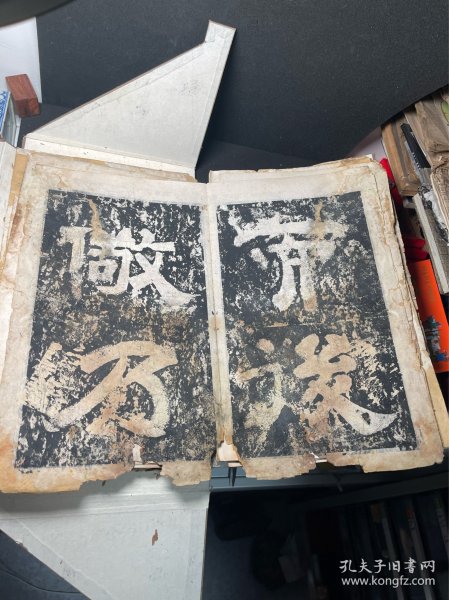 而後
儆乃
孔夫子旧书网
www.kongfz.com